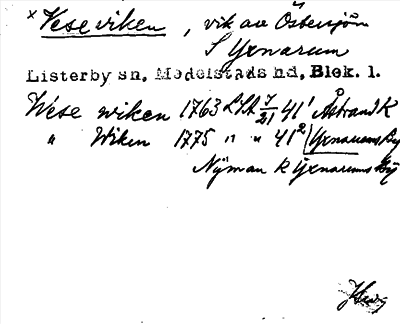 × Vese viken, vik av Östersjön
S Yxnarum
Listerby sn, Medelstads hd, Blek. l.
Wese wiken 1763 LSA 7/21 41¹ Åstrand K
" Wiken 1775 " " 41² Yxnarums By
Nyman K Yxnarums By